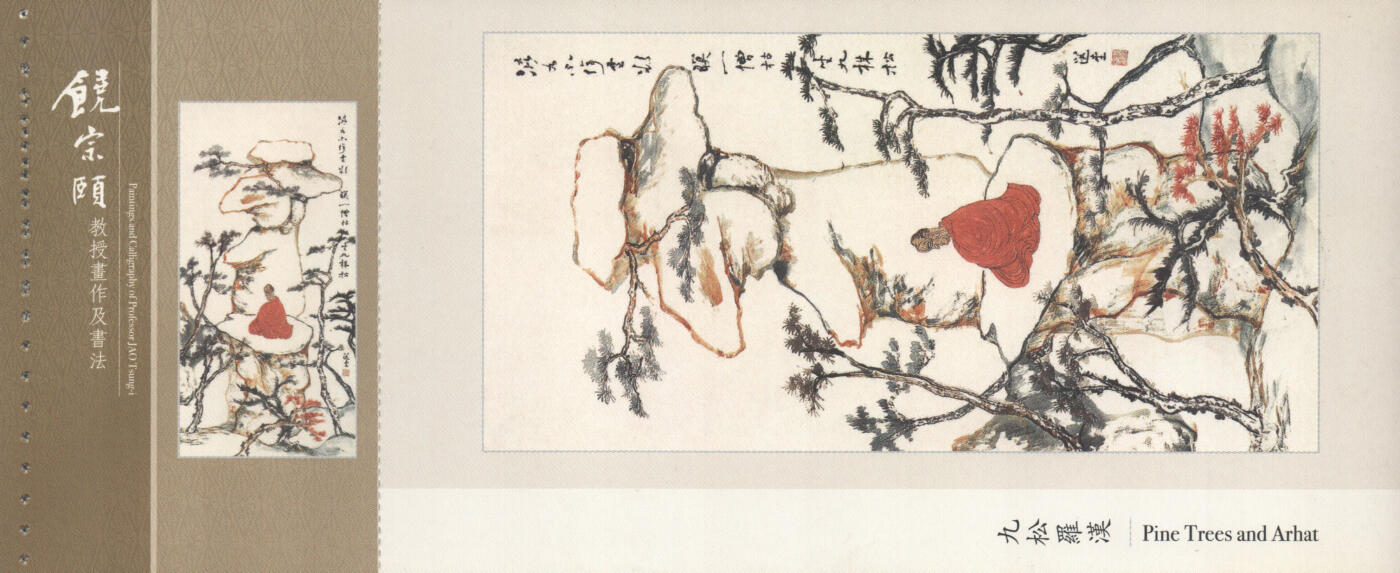 饒宗頤
教授畫作及書法
Paintings and Calligraphy of Professor JAO Tsung-i
暝一僧枯坐九株松
選堂
九松羅漢
Pine Trees and Arhat